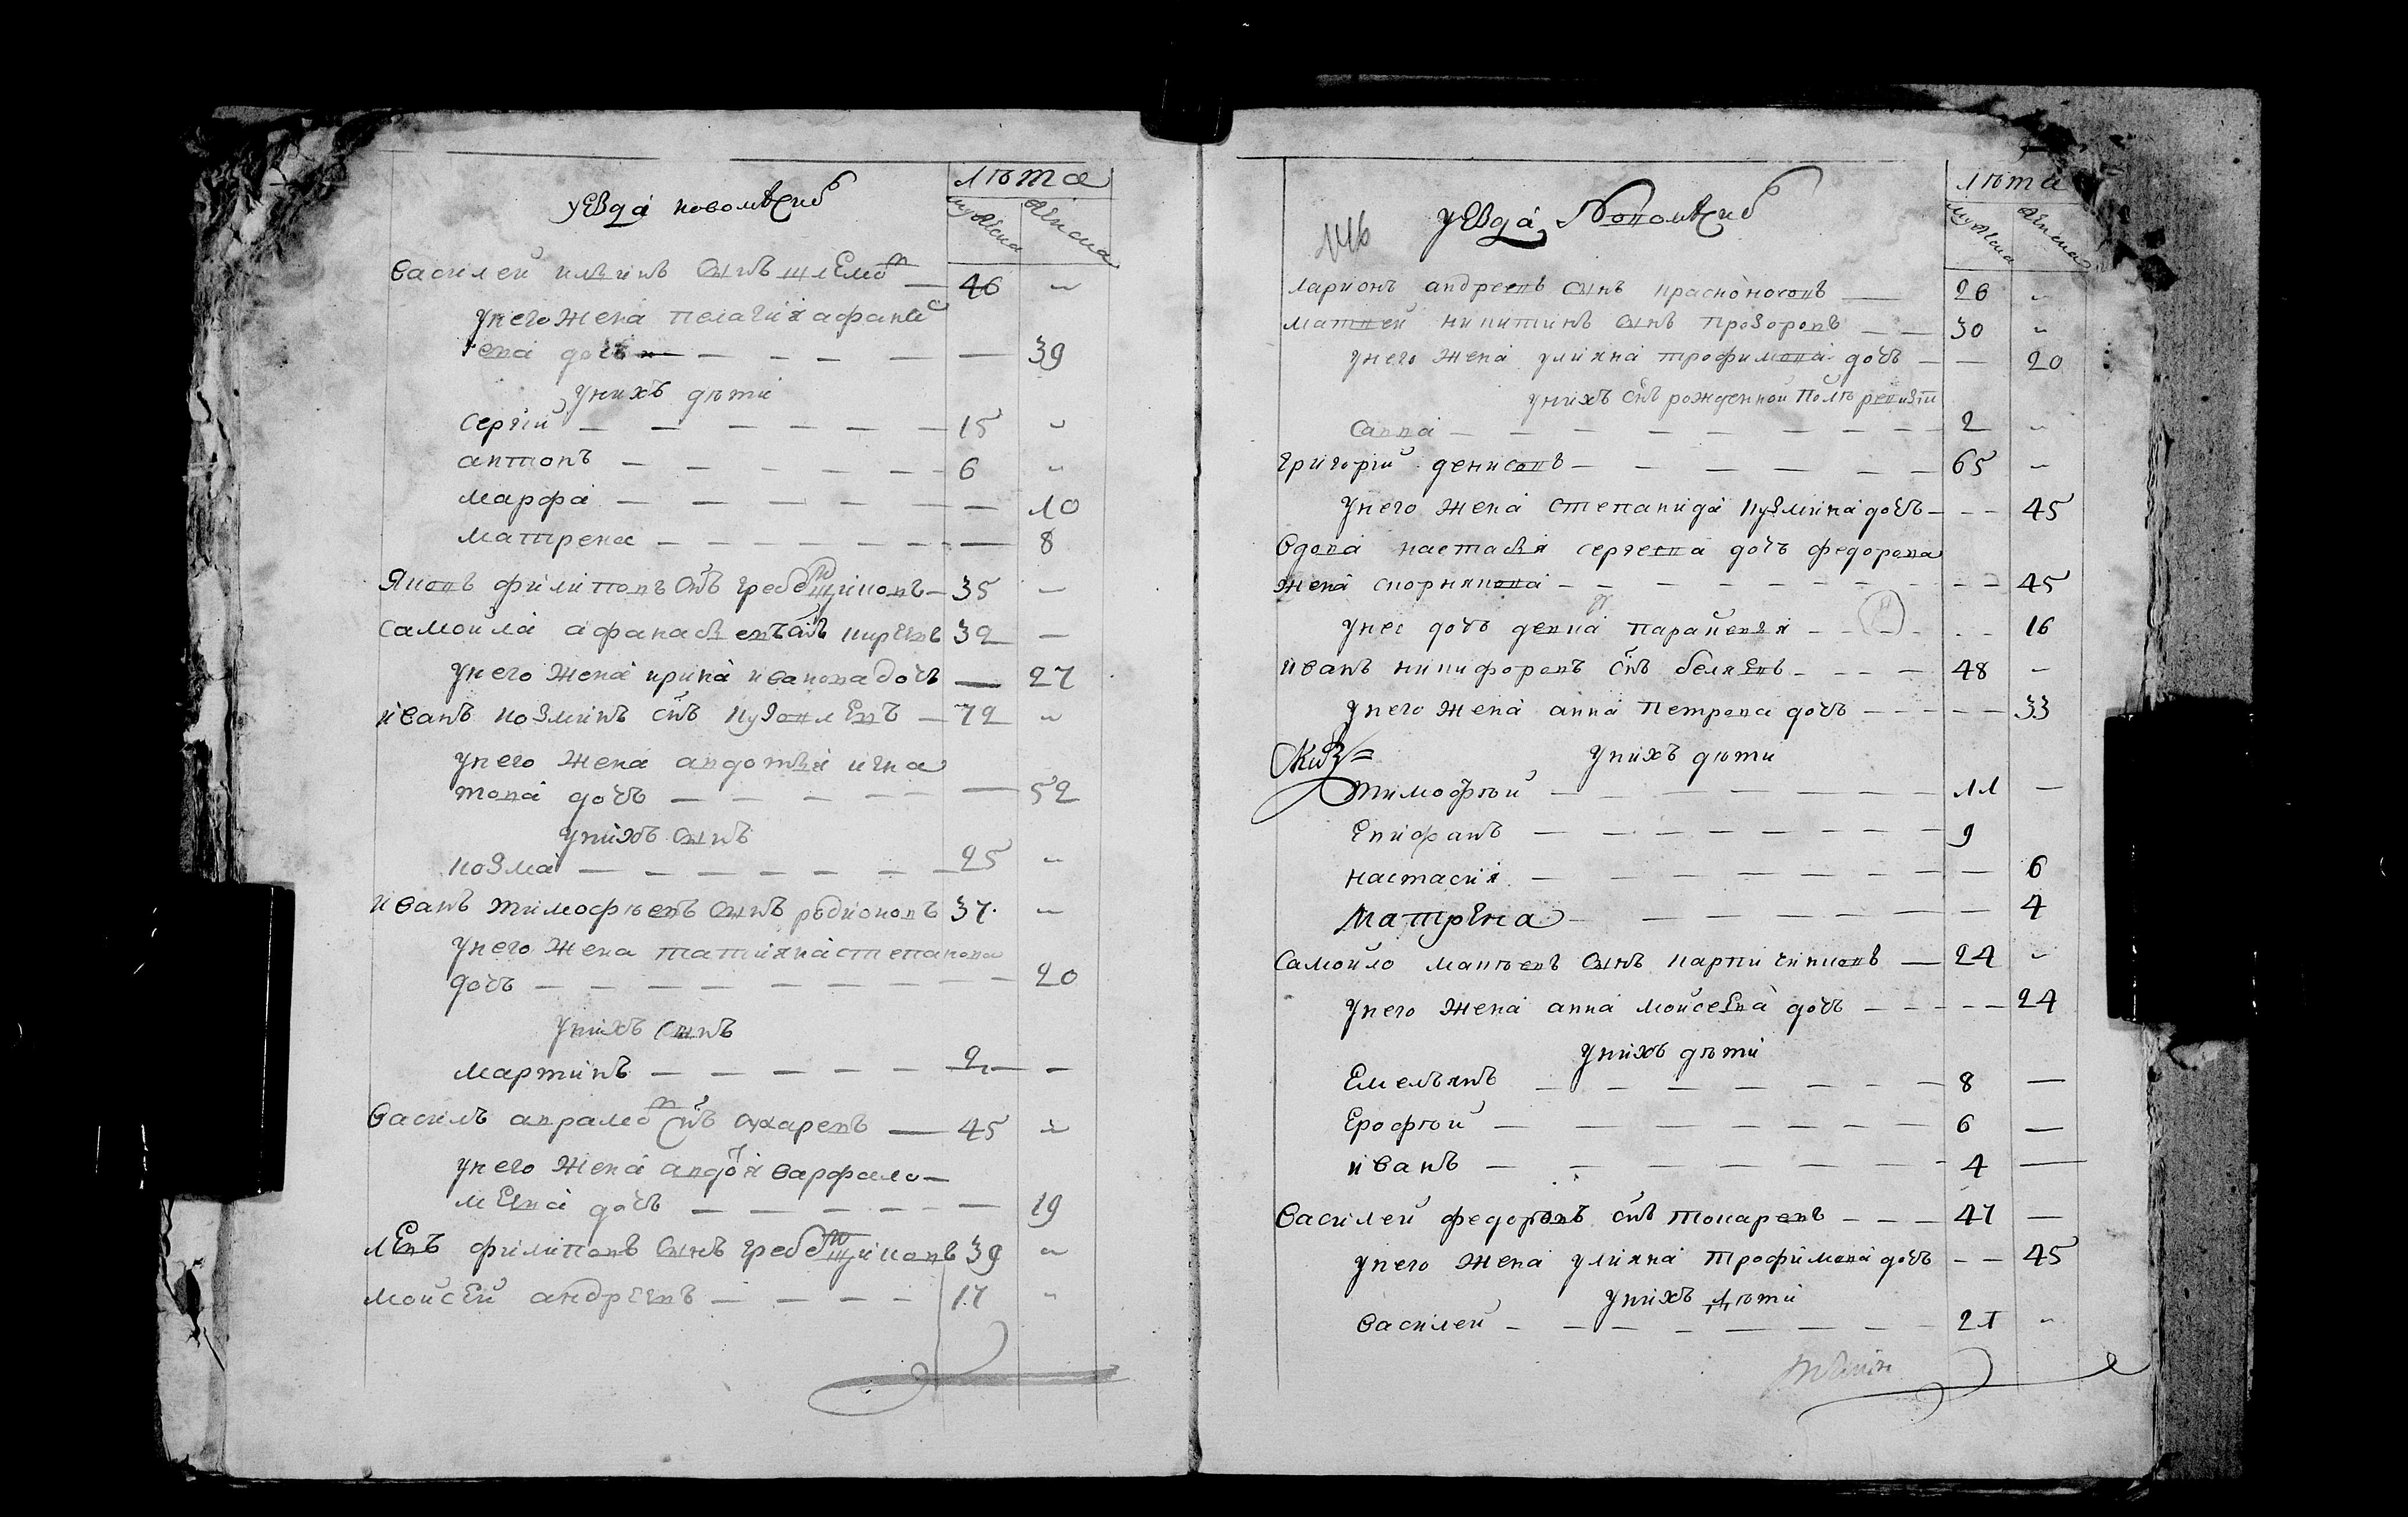 лѣта
мужеска
женска
Василей ильинъ сынъ шлемов 46
у него жена пелагия афанас
ева дочь 39
у нихъ дѣти
сергий 15
антонъ 6
марфа 10
матрена 8
Яковъ филиповъ снъ гребенщиковъ 35
самойла афанасьевъ снъ киреевъ 32
у него жена ирина иванова дочь 27
иванъ козминъ снъ кузовлевъ 72
у него жена авдотья игна
това дочь 52
у нихъ сынъ
козма 25
иванъ тимофѣевъ сынъ родионовъ 37
у него жена татияна степанова
дочь 20
у нихъ сынъ
мартинъ 2
Василъ аврамов снъ сухаревъ 45
у него жена авдотя варфало
меева дочь 19
левъ филиповъ сынъ гребенщиковъ 39
мойсей андреевъ 17
146
лѣта
мужеска
женска
ларионъ андреевъ сынъ красноносовъ 26
матвей никитинъ сынъ прозоровъ 30
у него жена улияна трофимова дочь 20
у нихъ снъ рожденной послѣ ревизіи
савва 2
григорий денисовъ 65
у него жена степанида кузмина дочь 45
вдова настасья сергеева дочь федорова
жена скорнякова 45
у нее дочь девка парасковя 16
иванъ никифоровъ снъ беляевъ 48
у него жена анна петрова дочь 33
у нихъ дѣти
тимофѣй 11
Епифанъ 9
настасия 6
Матрена 4
самойло матвеевъ сынъ карпичниковъ 24
у него жена анна мойсеева дочь 24
у нихъ дѣти
Емельянъ 8
Ерофѣй 6
иванъ 4
Василей федоровъ снъ токаревъ 47
у него жена улияна трофимова дочь 45
у нихъ дѣти
василей 21